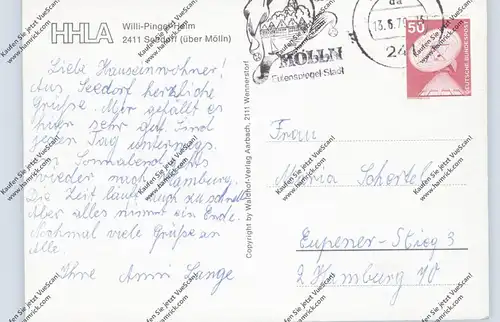 HHLA
Willi-Pinger-Heim
2411 Seedorf (über Mölln)
Liebe Hauseinwohner!
Aus Seedorf herzliche
Grüße. Mir gefällt es
hier sehr gut. Sind
jeden Tag unterwegs.
Am Sonnabend
wieder nach Hamburg.
Die Zeit läuft auch zu schnell
Aber alles nimmt ein Ende.
Nochmal viele Grüße an
Alle.
Ihre Anni Lange
Copyright by Waldhof-Verlag Aarbach, 2111 Wennerstorf
MÖLLN
Eulenspiegel-Stadt
13.6.79
24
50
DEUTSCHE BUNDESPOST
Frau
Maria Schostel
Eupener-Stieg 3
2 Hamburg 70
Kaufen Sie jetzt VueScan!
www.hamrick.com